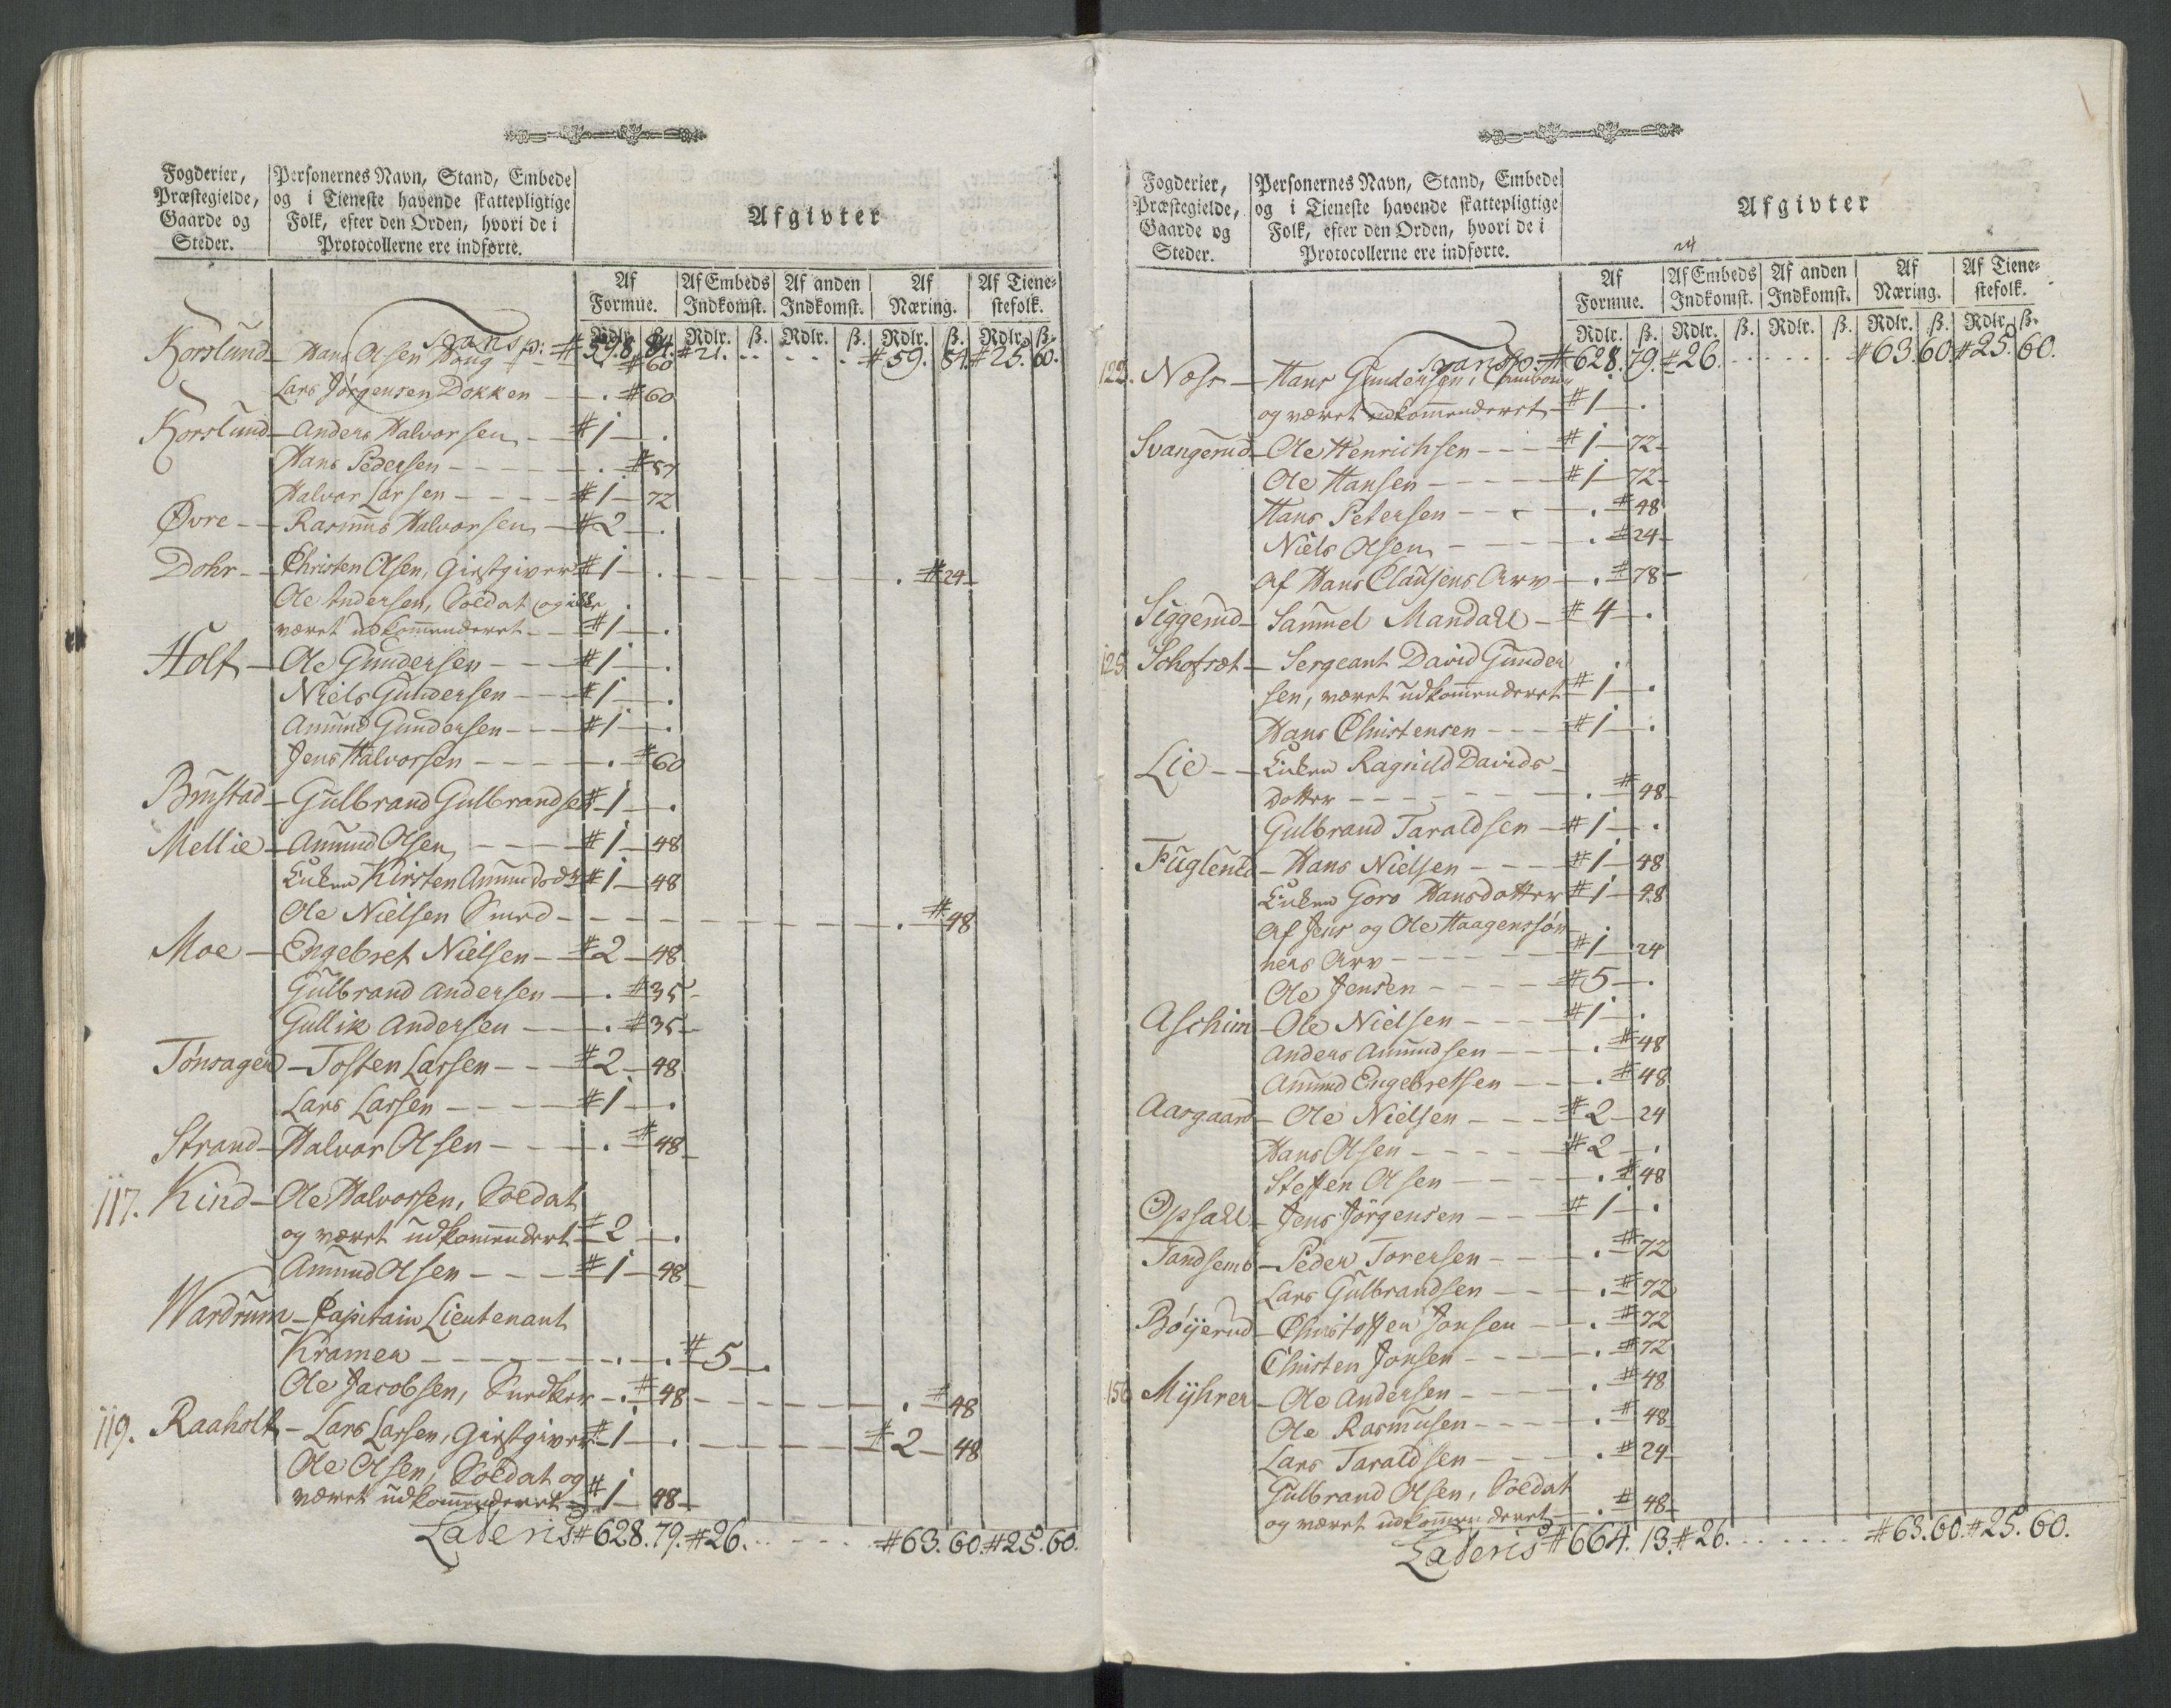 Fogderier,
Præstegielde,
Gaarde og
Steder.
Personernes Navn, Stand, Embede
og i Tieneste havende skattepligtige
Folk, efter den Orden, hvori de i
Protocollerne ere indførte.
Afgivter
Af Formue. Af Embeds Indkomst. Af anden Indkomst. Af Næring. Af Tiene=stefolk.
Rdlr. ß. Rdlr. ß. Rdlr. ß. Rdlr. ß. Rdlr. ß.
Transp: # 598. 84. # 21. # 59. 84. # 25. 60.
Korslund - Hans Olsen Houg # 60
Lars Jørgensen Dokken - . # 60
Korslund - Anders Halvorsen - # 1 - .
Hans Pedersen - . # 57
Halvor Larsen - # 1 - 72
Øvre - Rasmus Halvorsen - # 2 - .
Dohr - Christen Olsen, Giestgiver # 1 - . - . # 24
Ole Andersen, Soldat og
været udkommenderet - # 1 - .
Holt - Ole Gundersen - # 1 - .
Niels Gundersen - # 1 - .
Amund Gundersen - # 1 - .
Jens Halvorsen - . # 60
Brustad - Gulbrand Gulbrandsen # 1 - .
Mellie - Amund Olsen - # 1 - 48
Enken Kirsten Amundsd: # 1 - 48
Ole Nielsen Smed - . # 48
Moe - Engebret Nielsen - # 2 - 48
Gulbrand Andersen - . # 35 -
Gullik Andersen - . # 35 -
Tønsager - Tosten Larsen - # 2 - 48
Lars Larsen - # 1 - .
Strand - Halvor Olsen - . # 48
117. Kind - Ole Halvorsen, Soldat
og været udkommendert # 2 - .
Amund Olsen - # 1 - 48
Wardrum - Capitain Lieutenant
Kramer - . . # 5 - .
Ole Jacobsen, Snedker - . # 48 - . # 48
119. Raaholt - Lars Larsen, Giestgiver # 1 - . - # 2 - 48
Ole Olsen, Soldat og
været udkommenderet # 1 - 48
Lateris # 628. 79. # 26. # 63. 60. # 25. 60.
Fogderier,
Præstegielde,
Gaarde og
Steder.
Personernes Navn, Stand, Embede
og i Tieneste havende skattepligtige
Folk, efter den Orden, hvori de i
Protocollerne ere indførte.
Afgivter
Af Formue. Af Embeds Indkomst. Af anden Indkomst. Af Næring. Af Tiene=stefolk.
Rdlr. ß. Rdlr. ß. Rdlr. ß. Rdlr. ß. Rdlr. ß.
Transp: # 628. 79. # 26. # 63. 60. # 25. 60.
Næss - Hans Gundersen,
og været udkommenderet # 1 - .
Svangerud - Ole Henrichsen - # 1 - 72
Ole Hansen - # 1 - 72
Hans Petersen - . # 48
Niels Olsen - . # 24
Af Hans Clausens Arv - . # 78 -
Siggerud - Sammel Mandall - # 4 - .
125 - Sergeant David Gunder
sen, været udkommenderet # 1 - .
Hans Christensen - # 1 - .
Lie - Enken Ragnild Davids
Dotter - . # 48
Gulbrand Taraldsen - # 1 - .
Fuglerud - Hans Nielsen - # 1 - 48
Enken Goro Hansdotter # 1 - 48
Af Jens og Ole Haagenssøn
ners Arv - # 1 - 24
Ole Jensen - # 5 - .
Aschim - Ole Nielsen - # 1 - .
Anders Amundsen - . # 48
Amund Engebretsen - . # 48
Aasgaard - Ole Nielsen - # 2 - 24
Hans Olsen - # 2 - .
Steffen Olsen - . # 48
Opsall - Jens Jørgensen - # 1 - .
Tandsemb - Peder Torersen - . # 72
Lars Gulbrandsen - . # 72
Bøyerud - Christoffer Jonsen - . # 72
Christen Jonsen - . # 72
156 Myhrer - Ole Andersen - . # 48
Ole Rasmusen - . # 48
Lars Taraldsen - . # 24
Gulbrand Olsen, Soldat
og været udkommenderet - . # 48
Lateris # 664. 13. # 26. # 63. 60. # 25. 60.